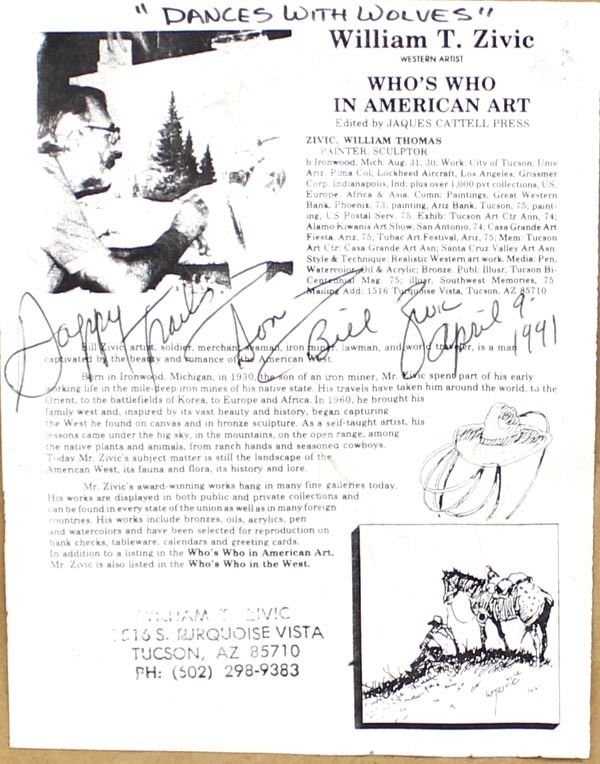 "DANCES WITH WOLVES"
William T. Zivic
WESTERN ARTIST
WHO'S WHO
IN AMERICAN ART
Edited by JAQUES CATTELL PRESS
ZIVIC, WILLIAM THOMAS
PAINTER, SCULPTOR
b Ironwood, Mich, Aug. 31, 30. Work: City of Tucson; Univ
Ariz; Pima Col; Lockheed Aircraft, Los Angeles; Grissmer
Corp, Indianapolis, Ind; plus over 1,000 pvt collections, US,
Europe, Africa & Asia. Comn: Paintings, Great Western
Bank, Phoenix, 73; painting, Ariz Bank, Tucson, 75; paint-
ing, US Postal Serv, 75. Exhib: Tucson Art Ctr Ann, 74;
Alamo Kiwanis Art Show, San Antonio, 74; Casa Grande Art
Fiesta, Ariz, 75; Tubac Art Festival, Ariz, 75; Mem: Tucson
Art Ctr; Casa Grande Art Asn; Santa Cruz Valley Art Asn.
Style & Technique: Realistic Western art work. Media: Pen,
Watercolor, Oil & Acrylic; Bronze. Publ: Illusr, Tucson Bi-
Centennial Mag, 75; illusr, Southwest Memories, 75.
Mailing Add: 1516 Turquoise Vista, Tucson, AZ 85710
Happy Trails Don Bill Zivic April 9, 1991
Bill Zivic artist, soldier, merchant seaman, iron miner, lawman, and world traveler, is a man
captivated by the beauty and romance of the American West.
Born in Ironwood, Michigan, in 1930, the son of an iron miner, Mr. Zivic spent part of his early
working life in the mile-deep iron mines of his native state. His travels have taken him around the world, to the
Orient, to the battlefields of Korea, to Europe and Africa. In 1960, he brought his
family west and, inspired by its vast beauty and history, began capturing
the West he found on canvas and in bronze sculpture. As a self-taught artist, his
lessons came under the big sky, in the mountains, on the open range, among
the native plants and animals, from ranch hands and seasoned cowboys.
Today Mr. Zivic's subject matter is still the landscape of the
American West, its fauna and flora, its history and lore.
Mr. Zivic's award-winning works hang in many fine galleries today.
His works are displayed in both public and private collections and
can be found in every state of the union as well as in many foreign
countries. His works include bronzes, oils, acrylics, pen
and watercolors and have been selected for reproduction on
bank checks, tableware, calendars and greeting cards.
In addition to a listing in the Who's Who in American Art,
Mr. Zivic is also listed in the Who's Who in the West.
WILLIAM T. ZIVIC
1516 S. TURQUOISE VISTA
TUCSON, AZ 85710
PH: (502) 298-9383